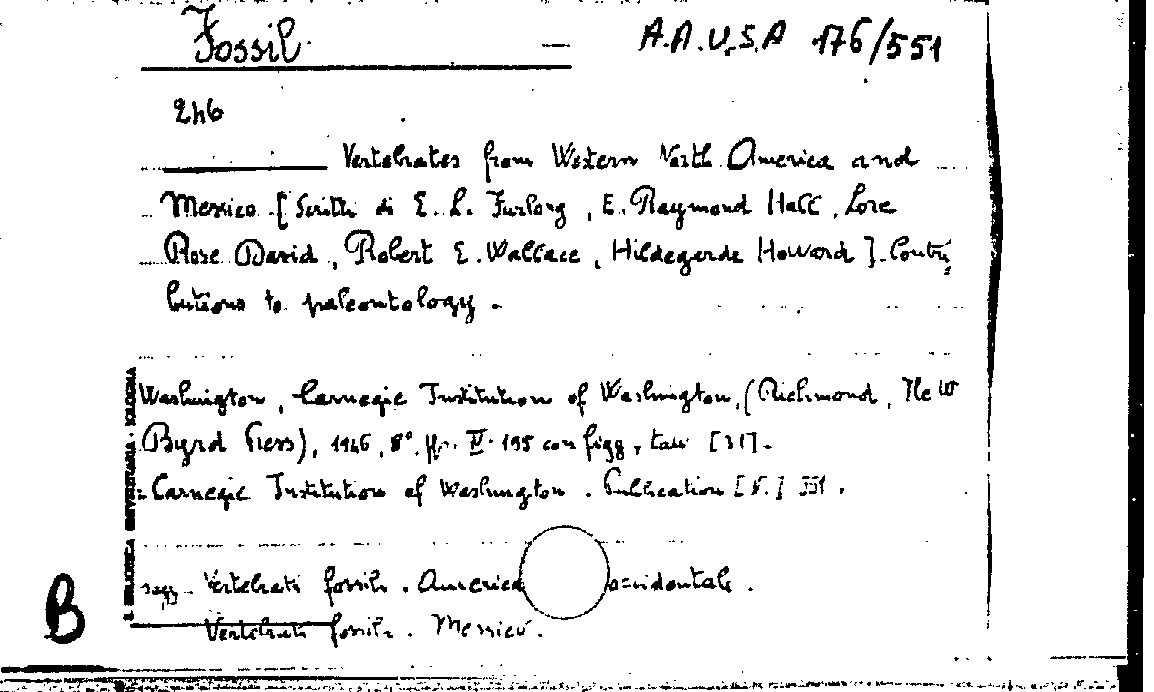 Fossil — A.A.U.S.A 176/551
246
Vertebrates from Western North America and
Mexico [Scritti di E. L. Furlong, E. Raymond Hall, Lore
Rose David, Robert E. Wallace, Hildegarde Howard]. Contri
butions to paleontology.
Washington, Carnegie Institution of Washington, (Richmond, The W
Byrd Press), 1946, 8°. pp. IV. 195 con figg, tav [31].
= Carnegie Institution of Washington. Publication [N.] 551.
S. BIBLIOTECA UNIVERSITARIA - BOLOGNA
B
sogg. Vertebrati fossili. America occidentale.
Vertebrati fossili. Messico.